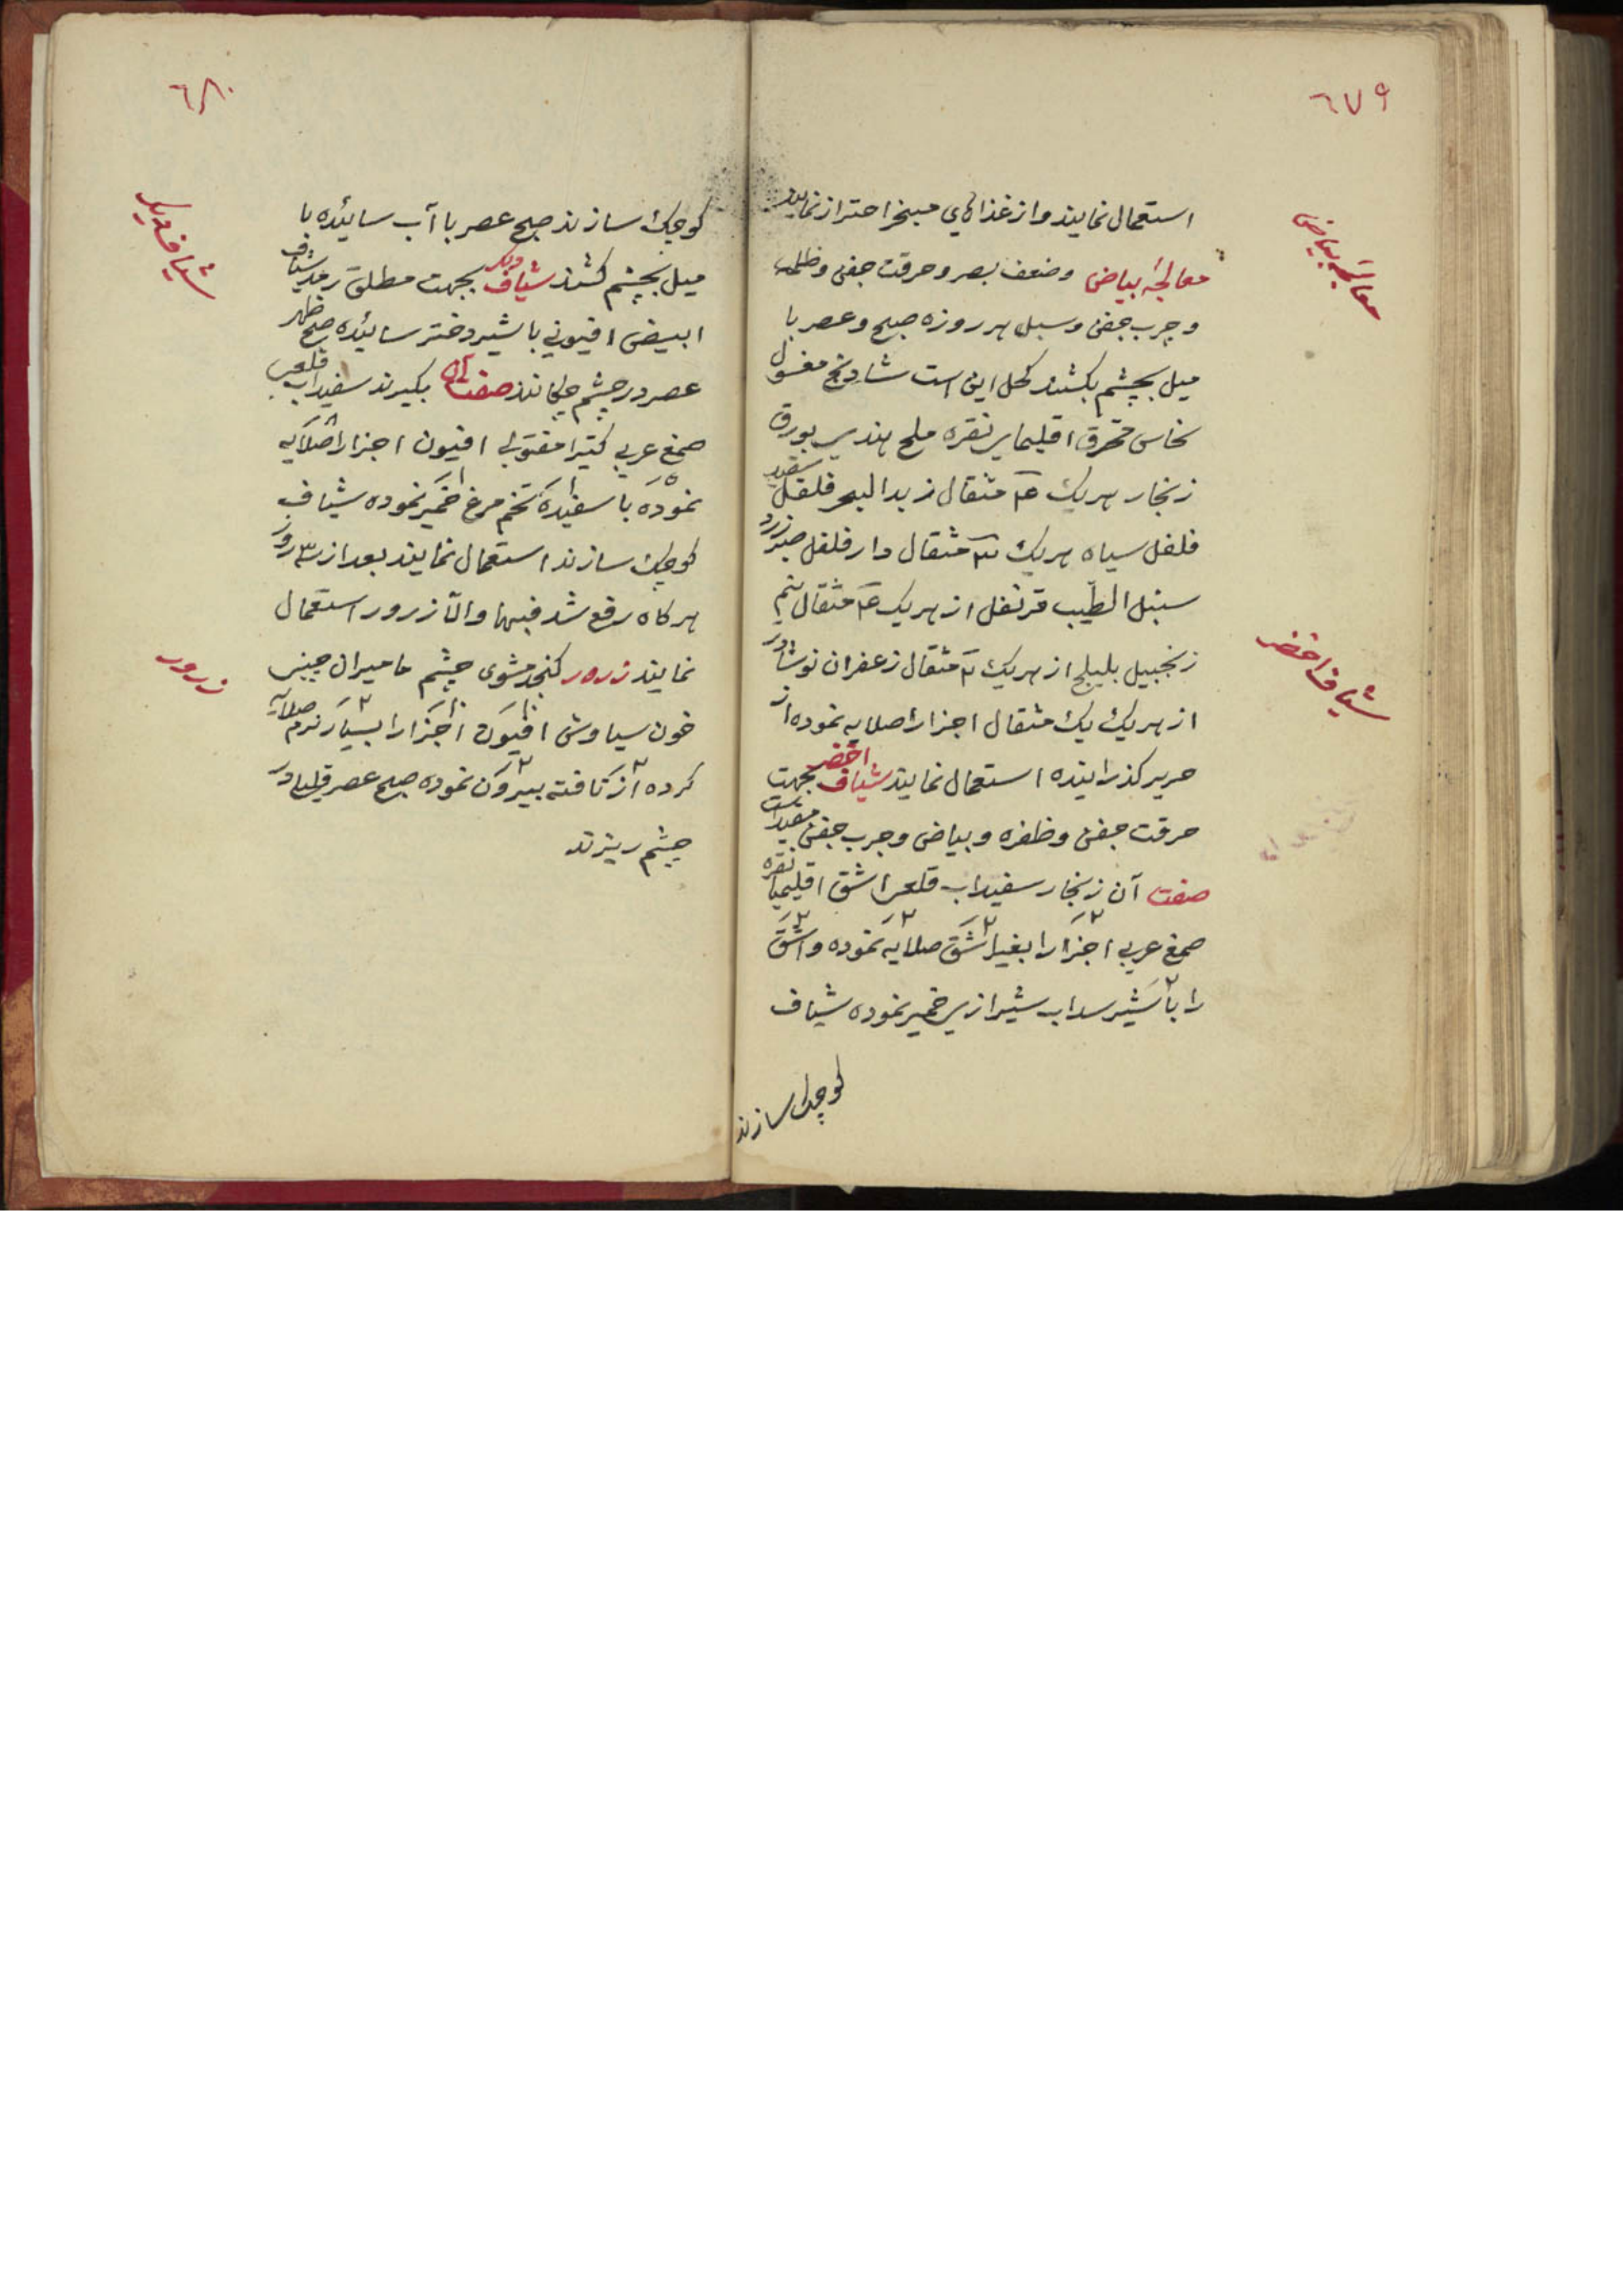 ٦٧٩
استعمال نمایند و از غذاهاي مبخر احتراز نمایند
معالجۀ بیاض
معالجۀ بیاض و ضعف بصر و حرقت جفن و ظلمه
و جرب جفن و سبل هر روزه صبح و عصر با
میل بچشم بکشند کحل این است شادنج مغسول
نحاس محرق اقلیمای نقره ملح هندي بورق
زنجار هریک مثقال زبد البحر فلفل سفید
فلفل سیاه هریک مثقال دار فلفل صبر زرد
سنبل الطیب قرنفل از هریک مثقال نیم
زنجبیل بلیلج از هریک مثقال زعفران نوشادر
شیاف اخضر
از هریک یک مثقال اجزا را صلایه نموده از
حریر کذرانیده استعمال نمایند شیاف اخضر بجهت
حرقت جفن و ظفره و بیاض و جرب جفن مفید است
صفت آن زنجار سفیداب قلعی اشق اقلیمیا نقره
صمغ عربي اجزا را بغیر اشق صلایه نموده و اشق
را با شیر سداب شیرازي خمیر نموده شیاف
کوچک سازند
٦٨٠
کوچک سازند صبح عصر با آب سائیده با
شیاف دیکر
میل بچشم کشند شیاف دیکر بجهت مطلق رمد شیاف
ابیض افیوني با شیر دختر سائیده صبح ظهر
عصر در چشم چکانند صفت آن بکیرند سفیداب قلعی
صمغ عربي کتیرا افیون اجزا را صلایه
نموده با سفیده تخم مرغ خمیر نموده شیاف
کوچک سازند استعمال نمایند بعد از ٣ روز
هرکاه رفع شد فبها و الّا زرور استعمال
زرور
نمایند زرور کنجد مشوی چشم مامیران چینی
خون سیاوش افیون اجزا را بسیار نرم صلایه
کرده از تافته بیرون نموده صبح عصر قلیلا در
چشم ریزند